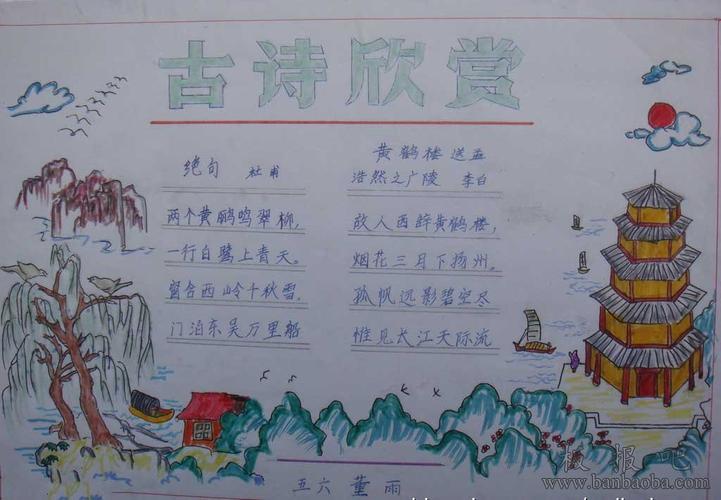 古诗欣赏
绝句 杜甫
两个黄鹂鸣翠柳,
一行白鹭上青天。
窗含西岭千秋雪,
门泊东吴万里船
黄鹤楼 送孟
浩然之广陵 李白
故人西辞黄鹤楼,
烟花三月下扬州。
孤帆远影碧空尽
惟见长江天际流
五六 董雨
板报吧
www.banbaoba.com